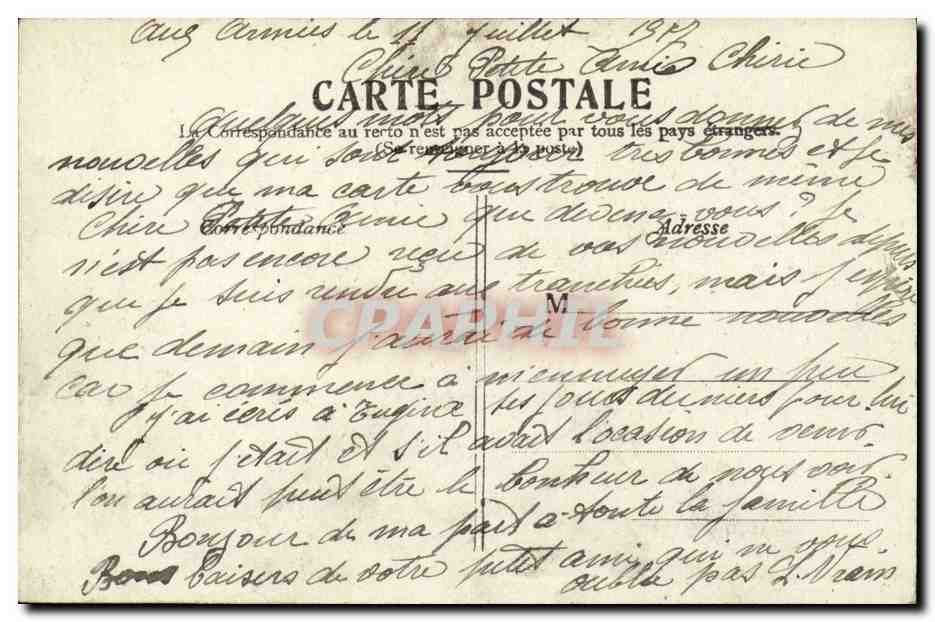 aux armées le 11 juillet 1917
Chere Petite Amie Cherie
CARTE POSTALE
quelques mots pour vous donner de mes
La Correspondance au recto n'est pas acceptée par tous les pays étrangers.
(Se renseigner à la poste)
nouvelles qui sont toujours tres bonnes et je
desire que ma carte vous trouve de même
Chere Petite Amie que devenez vous? Je
Correspondance
Adresse
n'est pas encore reçu de vos nouvelles depuis
que je suis rendu aux tranchées, mais j'espère
M
CPAPHIL
que demain j'aurai de bonne nouvelles
car je commence à m'ennuyer un peu
j'ai ecris à Eugine ses jours derniers pour lui
dire ou j'était et s'il avait l'ocasion de venir
l'on aurait peut être le bonheur de nous voir.
Bonjour de ma part à toute la famille
Bons baisers de votre petit ami qui ne vous
oublie pas